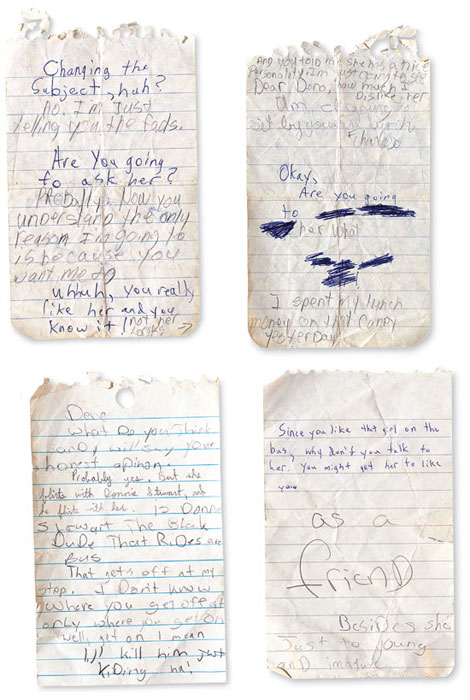 Changing the
Subject, huh?
no. I'm Just
telling you the facts.
Are You going
to ask her?
PROBally. Now you
understand the only
reason I'm going to
is because you
want me to
uhhuh, you really
like her and you
know it! not her
And you told me she has a nice
Personality. I'm just going to
Dear Dana, how much I
Dislike her
sit by you
Okay,
Are you going
to
her what
I spent my lunch
money on that Caney
yesterday
Dave
What Do you Think
and will say your
honest opinon.
Probably yes, but she
flirts with Donnie Stewart, and
he flirts with her. Is Donnie
Stewart The Black
Dude That Rides are
Bus
That gets off at my
stop. I Don't know
where you get off at
only where you get on
well, get on I mean
I'll kill him just
kiDing ha!
Since you like that girl on the
bus, why don't you talk to
her. You might get her to like
you
as a
frienD
Besides she
Just to young
and imature